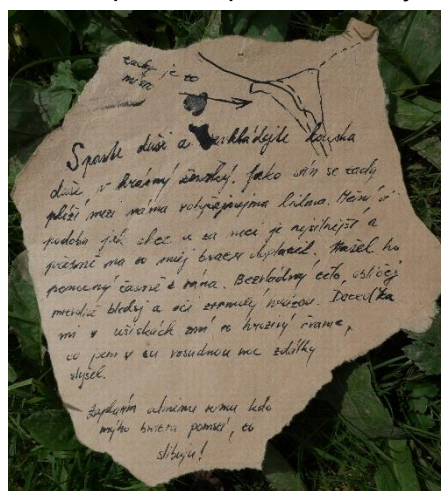 tady je to
místo
Spaste duši a
duši v krásný ženský. Jako stín se tady
plíží mezi náma vobyčejnejma lidma. Mění si
podobu jak chce a za noci je nejsilnější a
právě na to můj bratr doplatil. Našel ho
pomocný časně z rána. Bezvládný tělo, obličej
mrtvolně bledej a oči ztrnulý hrůzou. Doteďka
mi v uších zní to hrozivý řvaní,
co jsem v tu vosudnou noc zdálky
slyšel.
Zaplatím odměnu tomu kdo
mýho bratra pomstí, to
slibuju!